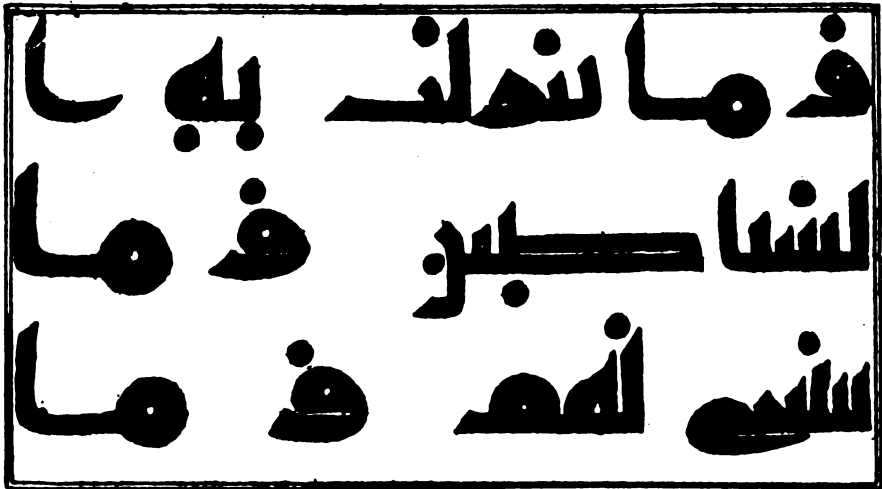 و ما تنزلت به ا
لشيطين و ما
ينبغى لهم و ما